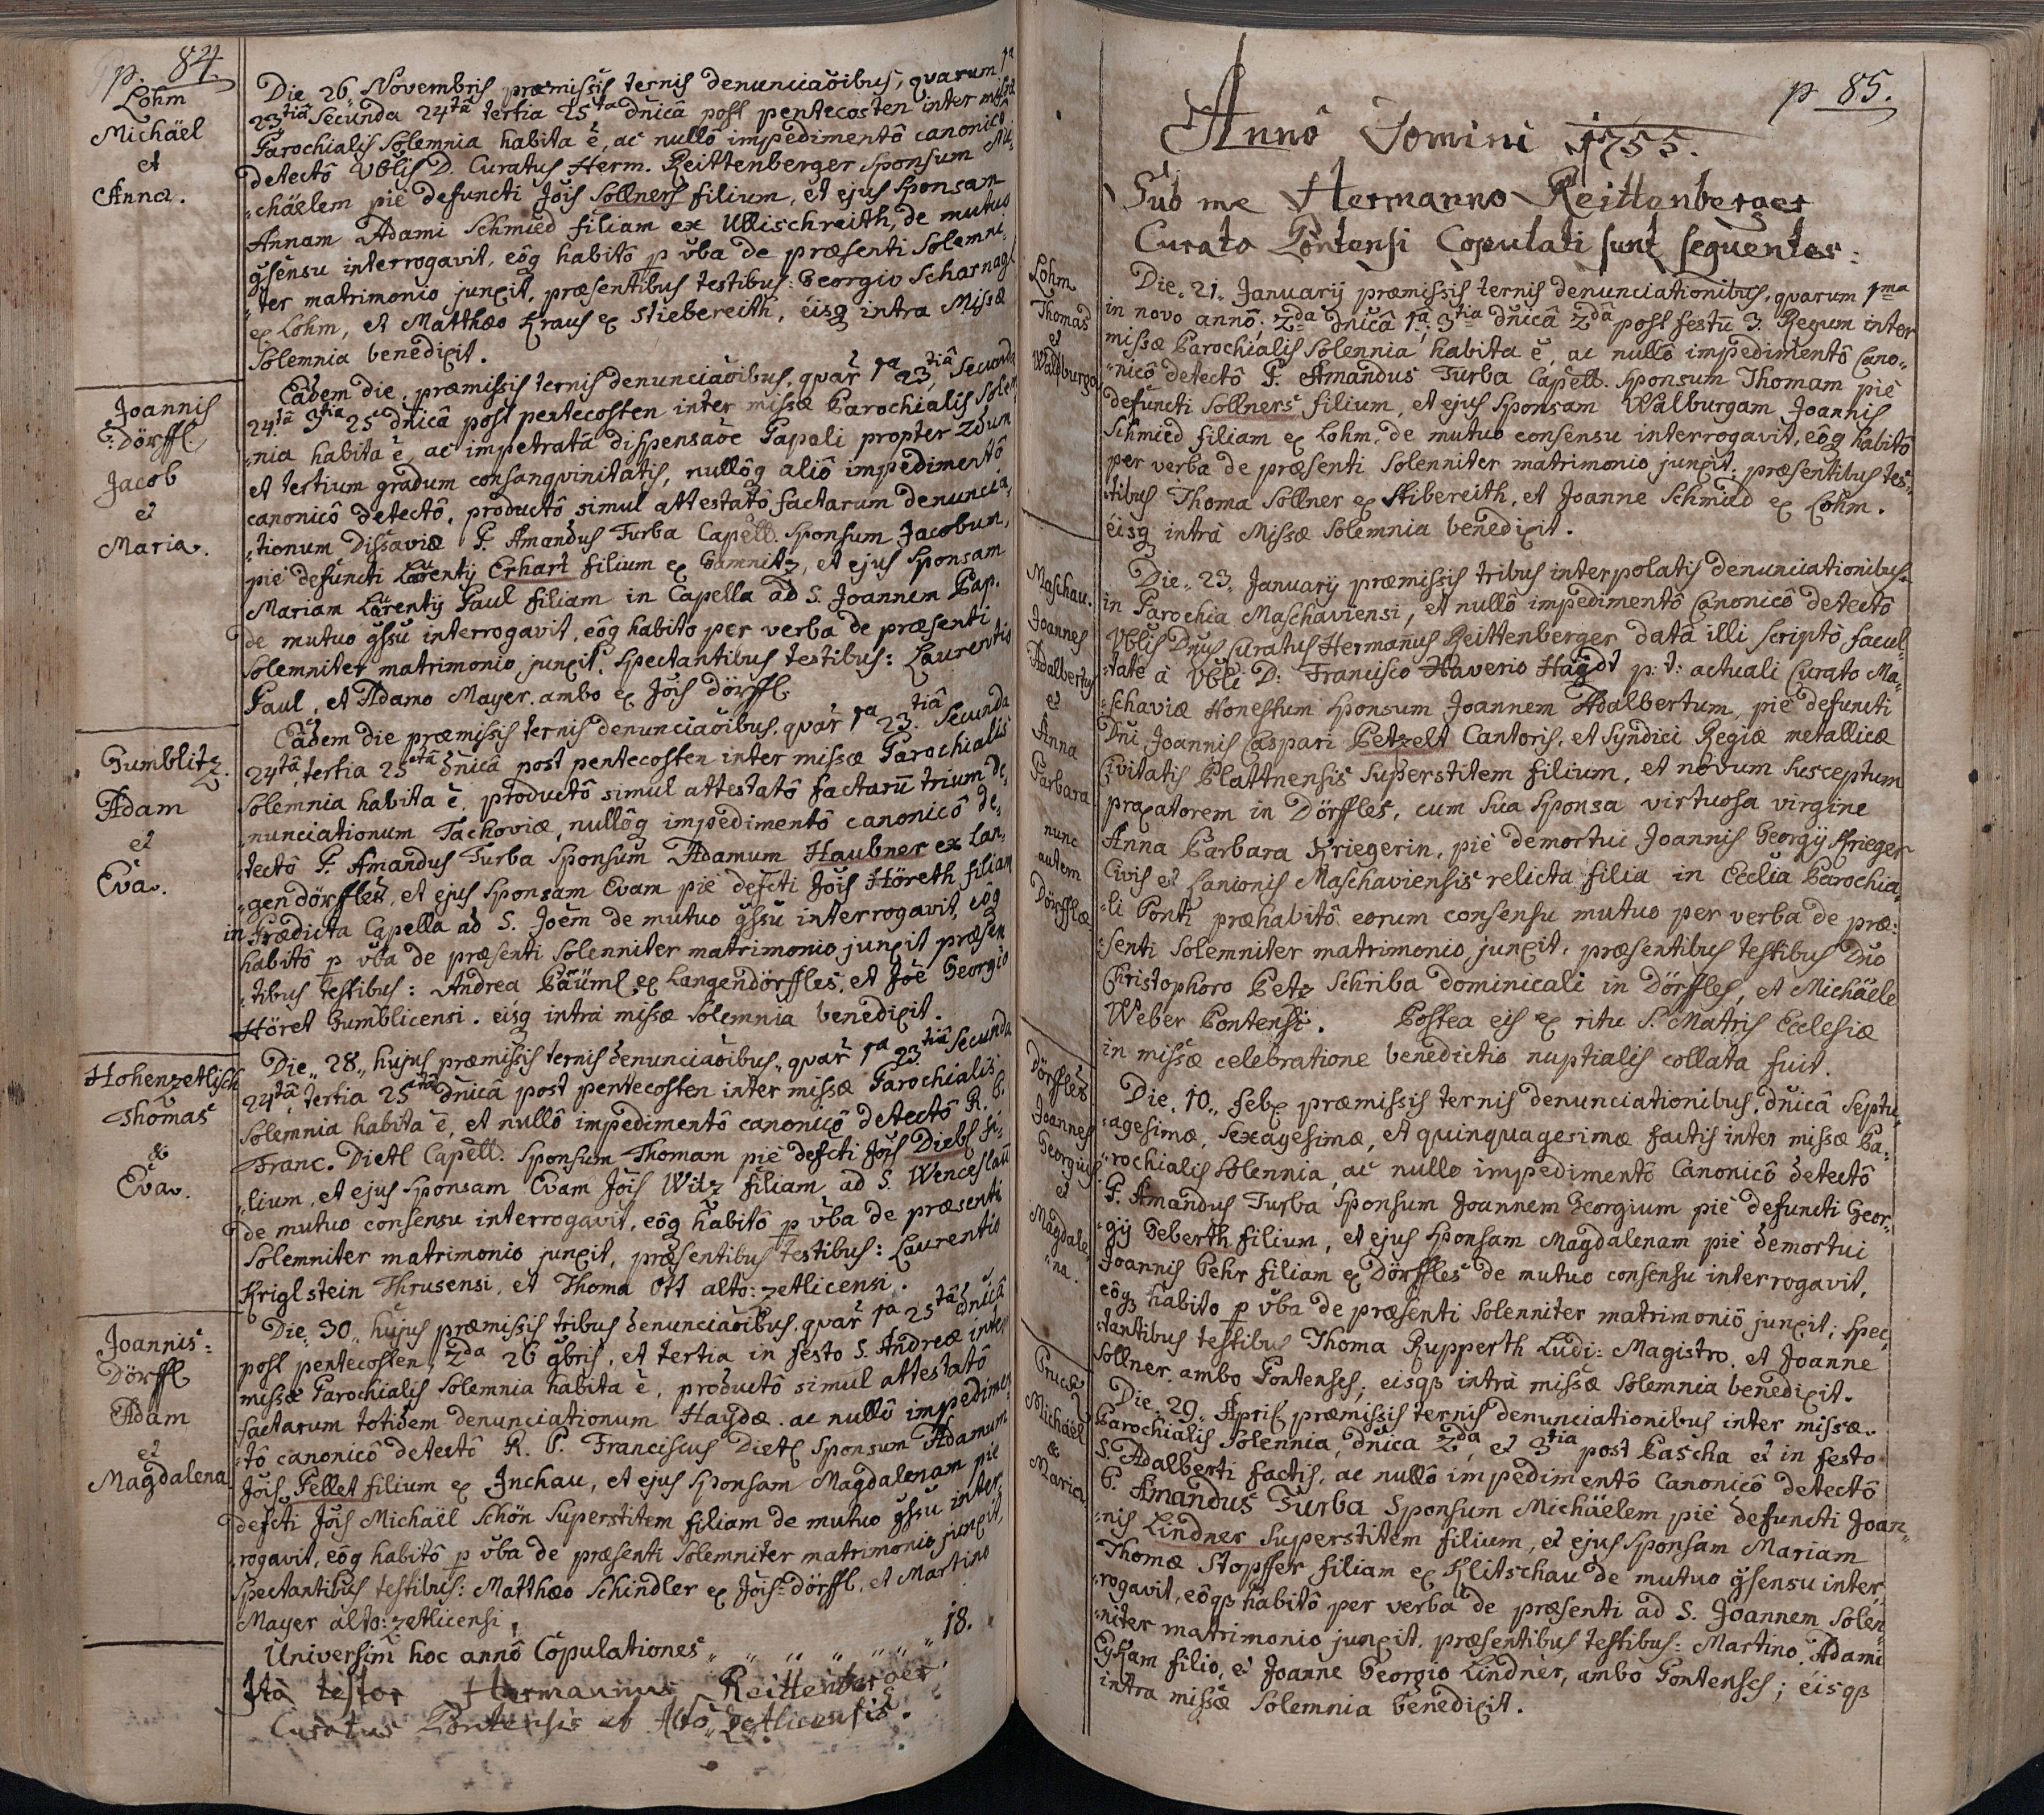 p. 84.
Lohm
Michäel
et
Anna.
Die 26 Novembris præmissis ternis denunciaōibus, quarum 1ª
23tiâ Secunda 24tâ tertia 25ta dnicâ post pentecosten inter missæ
Parochialis Solemnia habita ē, ac nullô impedimentô canonicô
detectô Vblis D. Curatus Herm. Reittenberger Sponsum Mi-
chäelem piè defuncti Jõis Sollners filium, et ejus Sponsam
Annam Adami Schmied filiam ex Ullischreith, de mutuo
gsensu interrogavit, eôq habitô p vba de præsenti Solemni-
ter matrimonio junxit, præsentibus testibus: Georgio Scharnagl
ex Lohm, et Matthæo Kraus ex Stiebereith, eisq intra Missæ
Solemnia benedixit.
Joannis
Dörffl
Jacob
et
Maria.
Eâdem die, præmissis ternis denunciaōibus, quar 1ª 23tiâ, Secunda
24tâ 3tia 25 dnicâ post pentecosten inter missæ Parochialis Solem-
nia habita ē, ac impetratâ dispensaōe Papali propter 2dum
et tertium gradum consangvinitatis, nullôq aliô impedimentô
canonicô detectô, productô simul attestatô factarum denuncia-
tionum Dissaviæ P. Amandus Turba Capell. Sponsum Jacobum,
piè defuncti Laurentij Erhart filium ex Gamnitz, et ejus Sponsam
Mariam Laurentij Paul filiam in Capella ad S. Joannem Bap.
de mutuo gssu interrogavit, eôq habito per verba de præsenti
Solemniter matrimonio junxit, Spectantibus testibus: Laurentio
Paul, et Adamo Mayer. ambo ex Jõis dörffl.
Gumblitz.
Adam
et
Eva.
Eâdem die præmissis ternis denunciaōibus, quar 1ª 23tiâ Secunda
24tâ, tertia 25tâ dnicâ post pentecosten inter missæ Parochialis
Solemnia habita ē, productô simul attestatô factarū trium de-
nunciationum Tachoviæ, nullôq impedimentô canonicô de-
tectô P. Amandus Turba Sponsum Adamum Haubner ex Lan-
gendörffles, et ejus Sponsam Evam piè defcti Jõis Höreth filiam
in Prædicta Capella ad S. Joēm de mutuo gssu interrogavit, eôq
habitô p vba de præsenti Solenniter matrimonio junxit præsen-
tibus testibus: Andrea Bäüml ex Langendörffles, et Jõe Georgio
Höret Gumblicensi. eisq intra missæ Solemnia benedixit.
Hohenzetlisch
Thomas
&
Eva.
Die 28 hujus præmissis ternis denunciaōibus, quar 1ª 23tiâ Secunda
24tâ, tertia 25tâ dnicâ post pentecosten inter missæ Parochialis
Solemnia habita ē, et nullô impedimentô canonicô detectô R. P.
Franc. Dietl Capell. Sponsum Thomam piè defcti Jõis Diebl fi-
lium, et ejus Sponsam Evam Jõis Witz filiam ad S. Wenceslaū
de mutuo consensu interrogavit, eôq habitô p vba de præsenti
Solemniter matrimonio junxit, præsentibus testibus: Laurentio
Kriglstein Thrusensi, et Thoma Ott alto: zetlicensi.
Joannis:
Dörffl
Adam
et
Magdalena
Die 30 hujus præmissis tribus denunciaōibus, quar 1ª 25tâ dnicâ
post pentecosten, 2da 26 9bris, et tertia in festo S. Andreæ inter
missæ Parochialis Solemnia habita ē, productô simul attestatô
factarum totidem denunciationum Haydæ, ac nullô impedimen-
tô canonicô detectô R. P. Franciscus Dietl Sponsum Adamum
Jõis Pellet filium ex Inchau, et ejus Sponsam Magdalenam piè
defcti Jõis Michaël Schön Superstitem filiam de mutuo gssu inter-
rogavit, eôq habitô p vba de præsenti Solemniter matrimonio junxit,
Spectantibus testibus: Matthæo Schindler ex Jõis: dörffl, et Martino
Mayer alto: zetlicensi.
Universim hoc annô Copulationes „ „ „ „ „ „ „ 18.
Ita testor Hermannus Reittenberger,
Curatus Pontensis et Alto Zetlicensis.
p 85.
Annô Domini 1755.
Sub me Hermanno Reittenberger
Curato Pontensi Copulati sunt sequentes:
Lohm
Thomas
et
Waldburga
Die 21. Januarij præmissis ternis denunciationibus, quarum 1ma
in novo annô; 2da dnicâ 1ª; 3tia dnicâ 2dâ post festū 3. Regum inter
missæ Parochialis Solennia habita ē, ac nullô impedimentô Cano-
nicô detectô P. Amandus Turba Capell. Sponsum Thomam piè
defuncti Sollners filium, et ejus Sponsam Walburgam Joannis
Schmied filiam ex Lohm, de mutuo consensu interrogavit, eôq habitô
per verba de præsenti Solenniter matrimonio junxit, præsentibus tes-
tibus Thoma Sollner ex Stibereith, et Joanne Schmid ex Lohm.
eisq intrà Missæ Solemnia benedixit.
Maschau.
Joannes
Adalbertg
et
Anna
Barbara
nunc
autem
Dörfflæ
Die 23 Januarij præmissis tribus interpolatis denunciationibus
in Parochia Maschaviensi, et nullô impedimentô Canonicô detectô
Vblis Dnus Curatus Hermañus Reittenberger datâ illi scriptô facul-
tate à Vbli D: Francisco Xaverio Haydt p: t: actuali Curato Ma-
schaviæ Honestum Sponsum Joannem Adalbertum, piè defuncti
Dni Joannis Caspari Betzelt Cantoris, et Syndici Regiæ metallicæ
Civitatis Plattnensis Superstitem filium, et novum Susceptum
praxatorem in Dörffles, cum Sua Sponsa virtuosa virgine
Anna Barbara Kriegerin, piè demortui Joannis Georgij Krieger
Civis et Lanionis Maschaviensis relicta filia in Ecclia Parochia-
li Ponti præhabitô eorum consensu mutuo per verba de præ-
senti Solemniter matrimonio junxit, præsentibus testibus Dno
Christophoro Betz Schriba dominicali in Dörffles, et Michäele
Weber Pontensi. Postea eis ex ritu S. Matris Ecclesiæ
in missæ celebratione benedictio nuptialis collata fuit.
Dörffles
Joannes
Georgius
et
Magdale
na.
Die 10 feb præmissis ternis denunciationibus, dnicâ Septu-
agesimæ, Sexagesimæ, et quinquagesimæ factis inter missæ Pa-
rochialis Solennia, ac nullo impedimentô Canonicô detectô
P. Amandus Turba Sponsum Joannem Georgium piè defuncti Geor-
gij Geberth filium, et ejus Sponsam Magdalenam piè demortui
Joannis Behr filiam ex Dörffles de mutuo consensu interrogavit,
eôq habito p vba de præsenti Solenniter matrimoniô junxit; Spec-
tantibus testibus Thoma Rupperth Ludi: Magistro, et Joanne
Sollner. ambo Pontenses; eisq intrà missæ Solemnia benedixit.
Prucæ
Michäel
&
Maria
Die 29 April præmissis ternis denunciationibus inter missæ
Parochialis Solennia, dnica 2da, et 3tia post Pascha et in festo
S. Adalberti factis, ac nullô impedimentô Canonicô detectô
P. Amandus Turba Sponsum Michäelem piè defuncti Joan-
nis Lindner Superstitem filium, et ejus Sponsam Mariam
Thomæ Stopffer filiam ex Klitschau de mutuo gsensu inter-
rogavit, eôq habitô per verba de præsenti ad S. Joannem Solen-
niter matrimonio junxit, præsentibus testibus: Martino Adami
filio, et Joanne Georgio Lindner, ambo Pontenses; eisq
intra missæ Solemnia benedixit.